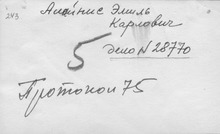 243
Алойнис Эмиль
Карлович
5
дело N 28770
Протокол 75